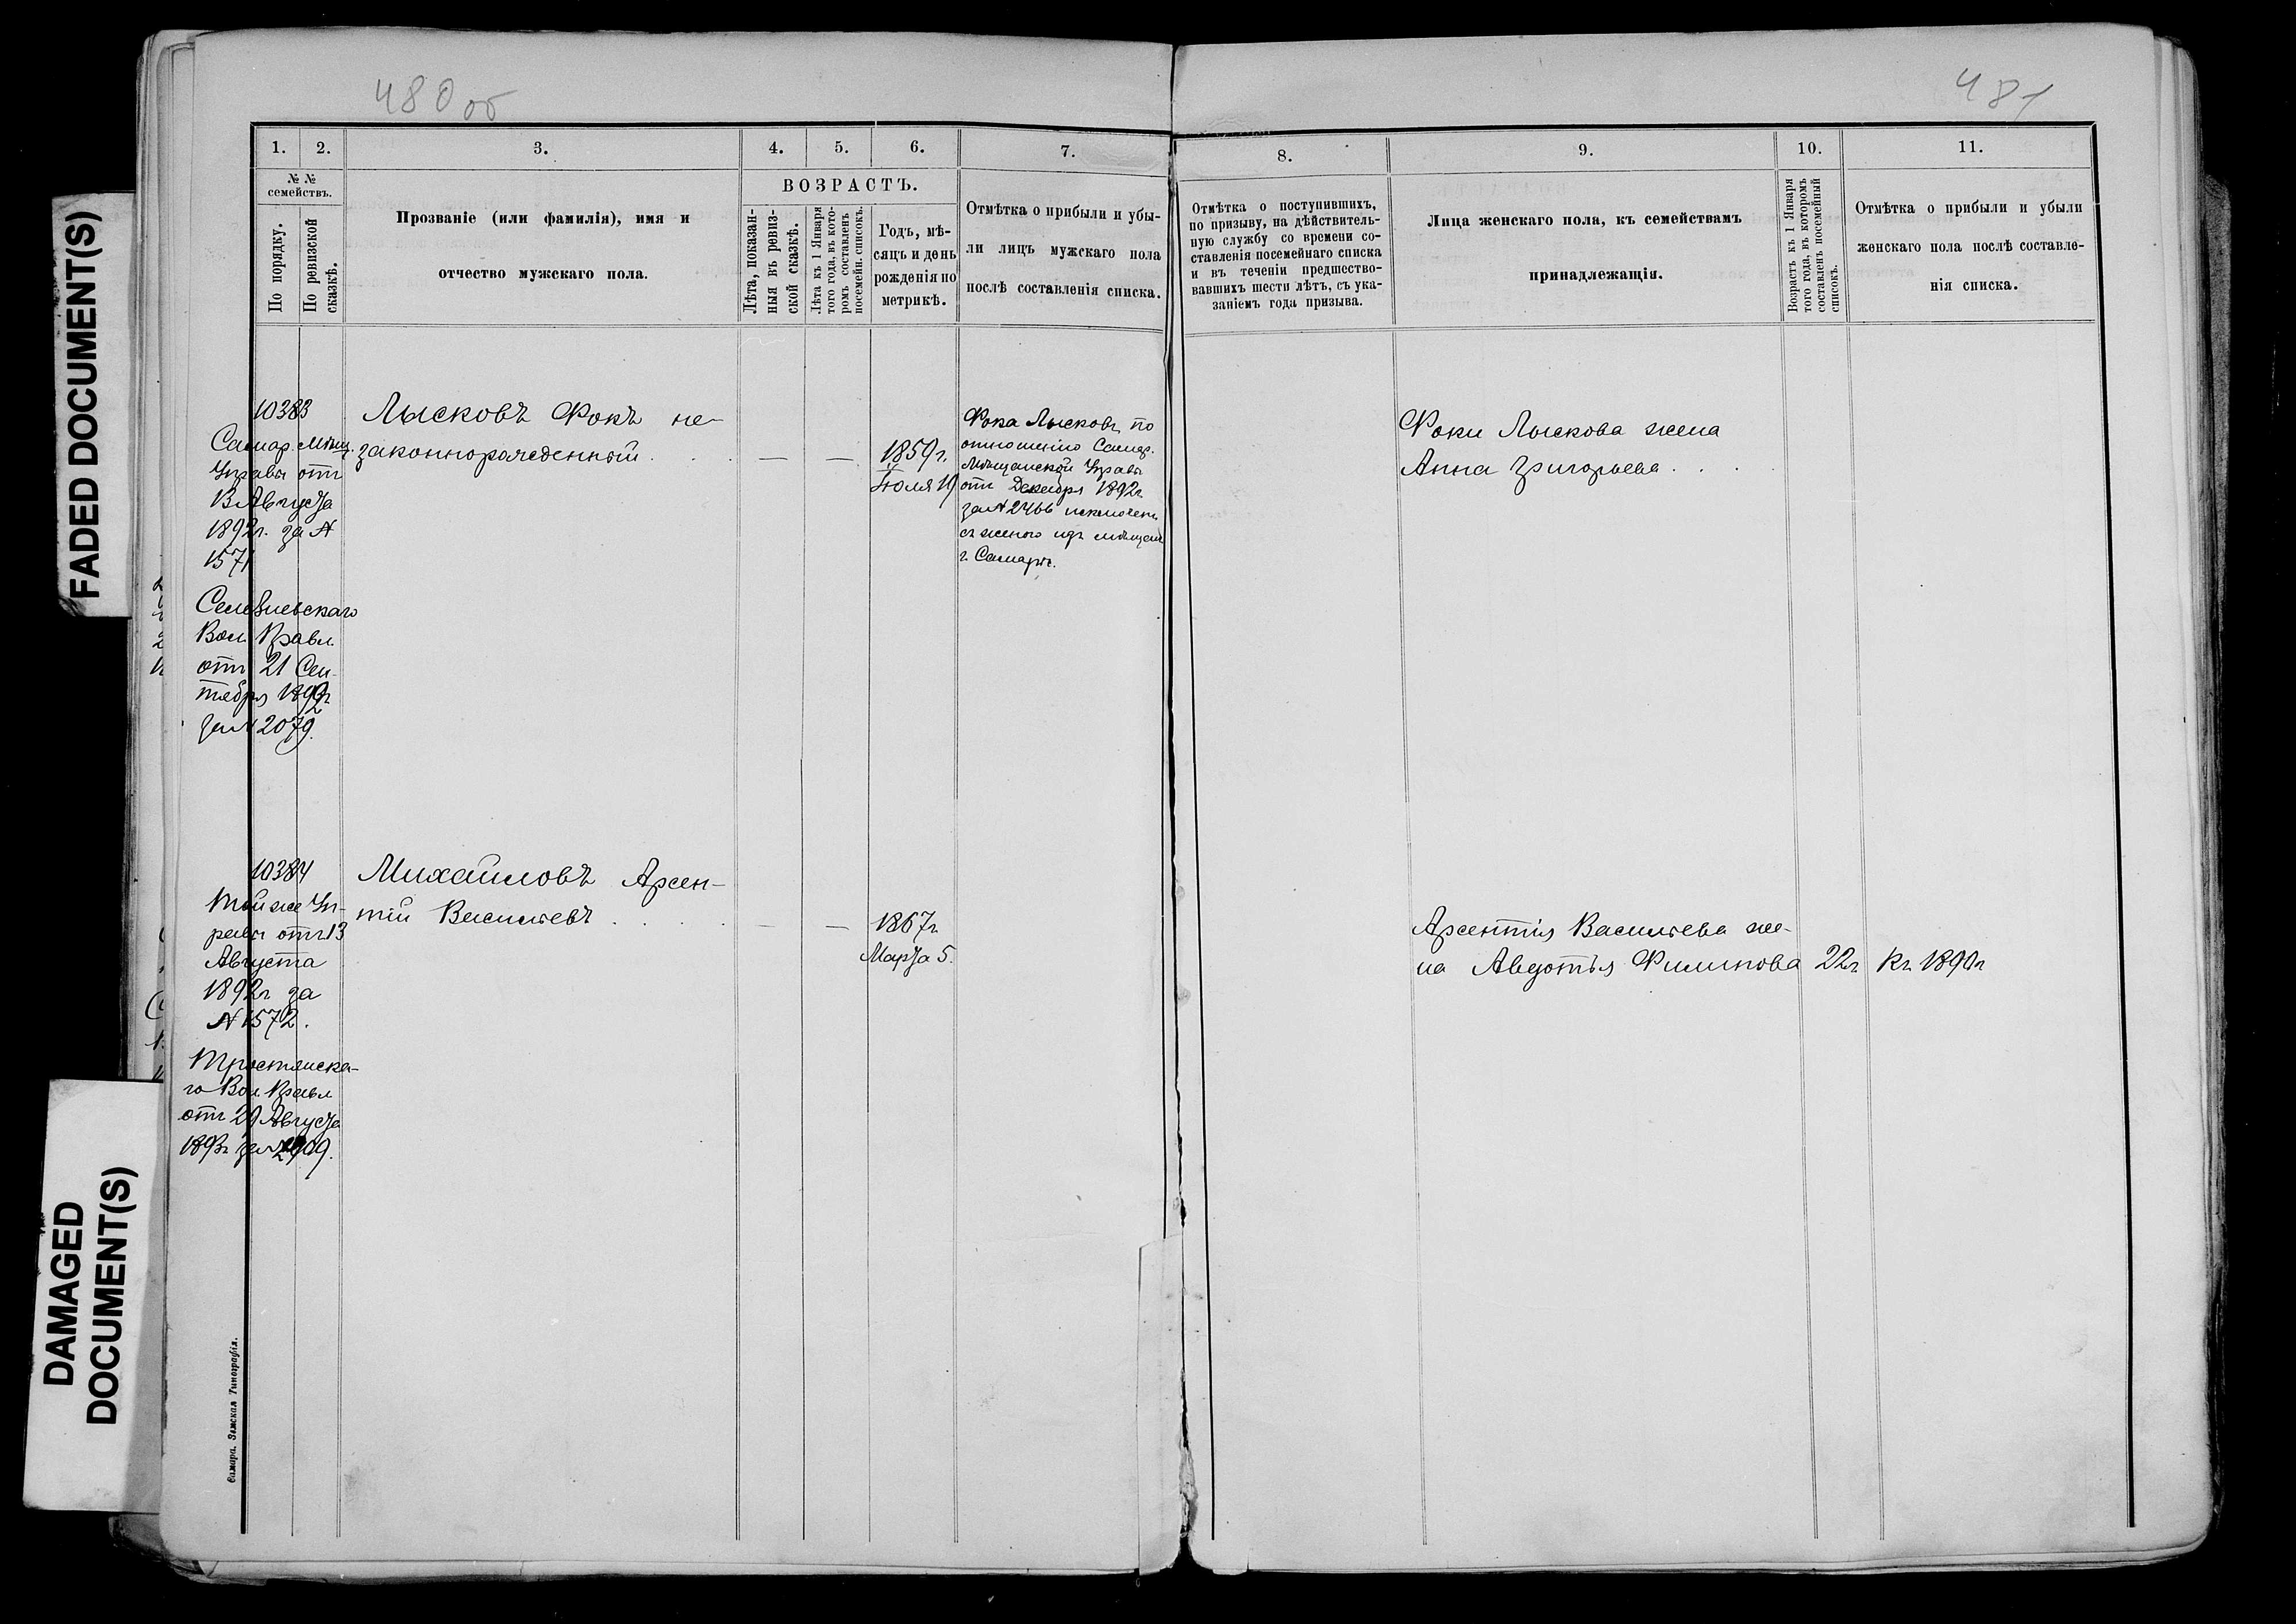 480 об
481
FADED DOCUMENT(S)
DAMAGED
DOCUMENT(S)
1.
2.
3.
4.
5.
6.
7.
8.
9.
10.
11.
№ №
семействъ.
По порядку.
По ревизской
сказкѣ.
Прозваніе (или фамилія), имя и
отчество мужскаго пола.
ВОЗРАСТЪ.
Лѣта, показан-
ныя въ ревиз-
ской сказкѣ.
Лѣта къ 1 Января
того года, въ кото-
ромъ составленъ
посемейн. списокъ.
Годъ, мѣ-
сяцъ и день
рожденія по
метрикѣ.
Отмѣтка о прибыли и убы-
ли лицъ мужскаго пола
послѣ составленія списка.
Отмѣтка о поступившихъ,
по призыву, на дѣйствитель-
ную службу со времени со-
ставленія посемейнаго списка
и въ теченіи предшество-
вавшихъ шести лѣтъ, съ ука-
заніемъ года призыва.
Лица женскаго пола, къ семействамъ
принадлежащія.
Возрастъ къ 1 Января
того года, въ которомъ
составленъ посемейный
списокъ.
Отмѣтка о прибыли и убыли
женскаго пола послѣ составле-
нія списка.
10383
Самар. Мѣщ.
Управы отъ
13 Августа
1892г. за №
1571
Вол. Правл.
отъ 21 Сен-
тября 1892г
за № 2079.
Лысковъ Фокъ не-
законнорожденный . . . — —
1859г.
Іюля 19
Фока Лысковъ, по
отношенію Самар.
Мѣщанской Управы
отъ Декабря 1892г.
за № 2466 исключенъ
съ женою изъ мѣщанъ
г. Самары.
Фоки Лыскова жена
Анна Григорьева . . .
10384
Той же Уп-
равы отъ 13
Августа
1892г за
№ 1572.
Тростянска-
го Вол. Правл
отъ 29 Августа
1893г за №
Михайловъ Арсен-
тій Васильевъ . . . — —
1867г.
Марта 5.
Арсентія Васильева же-
на Авдотья Филипова 22г къ 1890г
Самара. Земская Типографія.